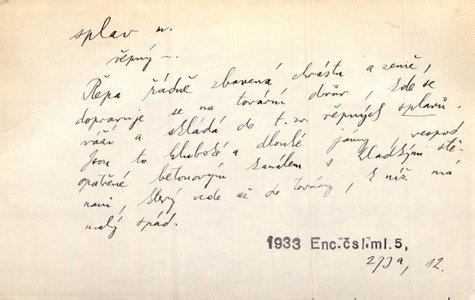 splav m.
řepný ~.
Řepa řádně zbavená chrástu a země,
dopravuje se na tovární dvůr, kde se
váží a skládá do t. zv. řepných splavů.
Jsou to hluboké a dlouhé jámy, vespod
opatřené betonovým kanálem s hladkými stě-
nami, který vede až do továrny, k níž má
malý spád.
1933 Enc.čsl.ml.5,
273a, 12.